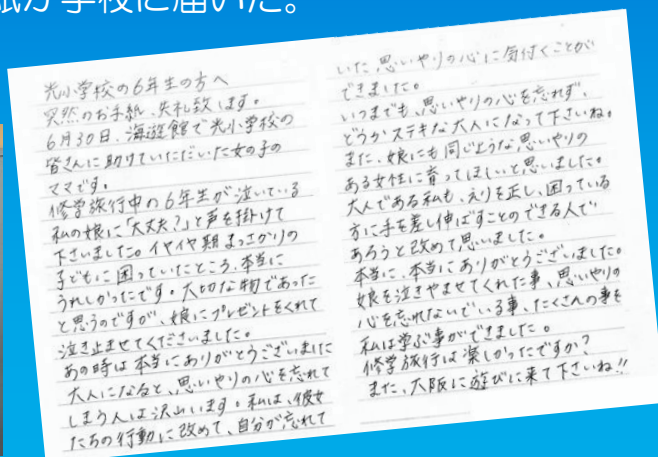 紙が学校に届いた。
光小学校の6年生の方へ
突然のお手紙、失礼致します。
6月30日、海遊館で光小学校の
皆さんに助けていただいた女の子の
ママです。
修学旅行中の6年生が泣いている
私の娘に「大丈夫?」と声を掛けて
下さいました。イヤイヤ期まっさかりの
子どもに困っていたところ、本当に
うれしかったです。大切な物であった
と思うのですが、娘にプレゼントをくれて
泣き止ませてくださいました。
あの時は本当にありがとうございました
大人になると、思いやりの心を忘れて
しまう人は沢山います。私は、彼女
たちの行動に改めて、自分が忘れて
いた思いやりの心に気付くことが
できました。
いつまでも、思いやりの心を忘れず、
どうかステキな大人になって下さいね。
また、娘にも同じような思いやりの
ある女性に育ってほしいと思いました。
大人である私も、えりを正し、困っている
方に手を差し伸ばすことのできる人で
あろうと改めて思いました。
本当に、本当にありがとうございました。
娘を泣きやませてくれた事、思いやりの
心を忘れないでいる事、たくさんの事を
私は学ぶ事ができました。
修学旅行は楽しかったですか?
また、大阪に遊びに来て下さいね!!